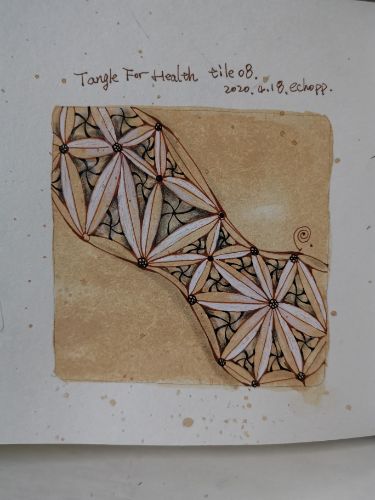 Tangle For Health tile 08.
2020.4.18. echopp.